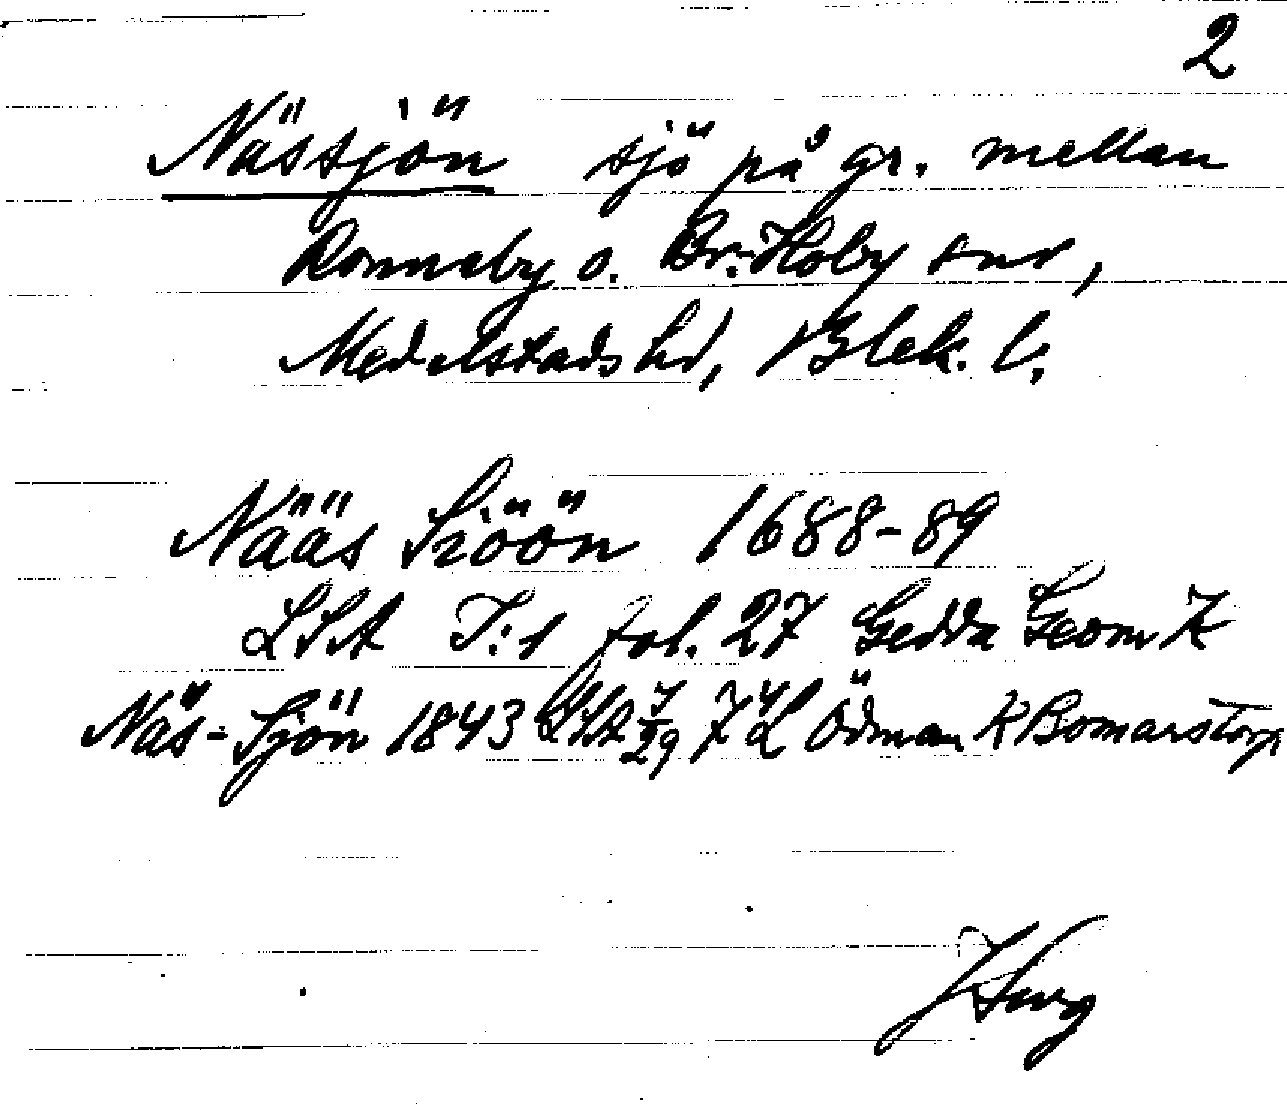 2
Nässjön sjö på gr. mellan
Ronneby o. Br.-Hoby snr,
Medelstads hd, Blek. l.
Nääs Siöön 1688-89
LSA T:1 fol. 27 Gedda Geom K
Näs-Sjön 1843 LSA 7/29 Ödman K Bomarstorp